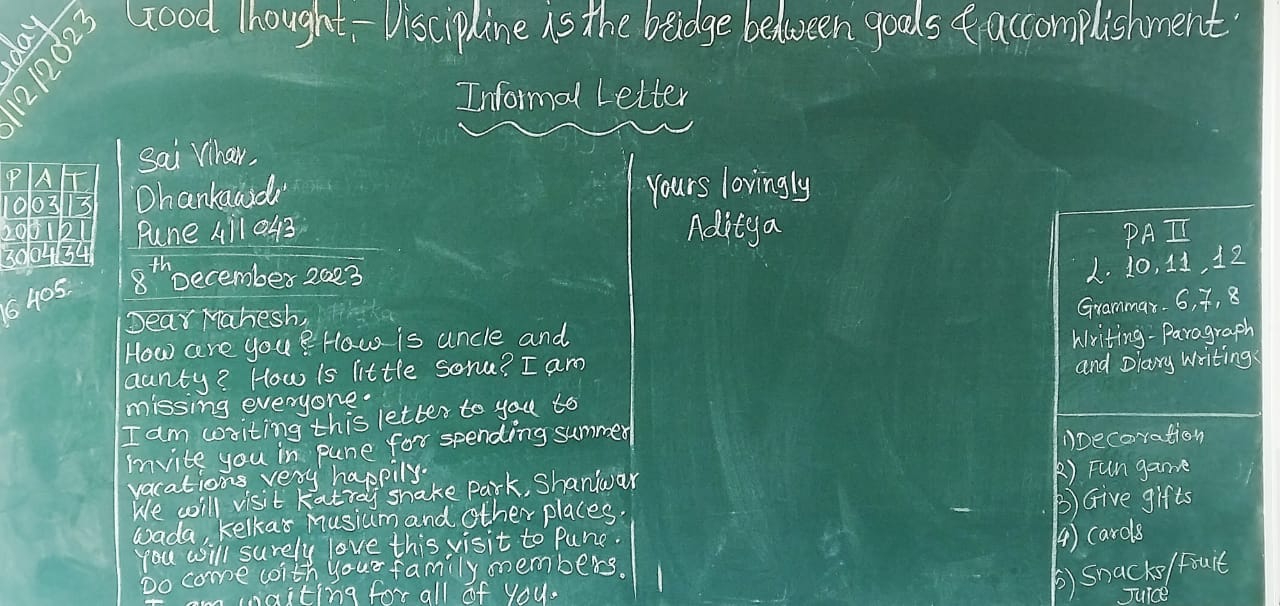 Good Thought:- Discipline is the bridge between goals & accomplishment.
/12/2023
Informal Letter
P A T
10 03 13
20 01 21
30 04 34
16 405.
Sai Vihar,
Dhankawdi
Pune 411 043
8th December 2023
Dear Mahesh,
How are you? How is uncle and
aunty? How is little sonu? I am
missing everyone.
I am writing this letter to you to
invite you in pune for spending summer
vacations very happily.
We will visit Katraj snake Park, Shaniwar
wada, kelkar Musium and other places.
You will surely love this visit to Pune.
Do come with your family members.
I am waiting for all of you.
Yours lovingly
Aditya
PA II
L. 10, 11, 12
Grammar - 6, 7, 8
Writing - Paragraph
and Diary Writing
1) Decoration
2) Fun game
3) Give gifts
4) carols
5) Snacks/Fruit
Juice